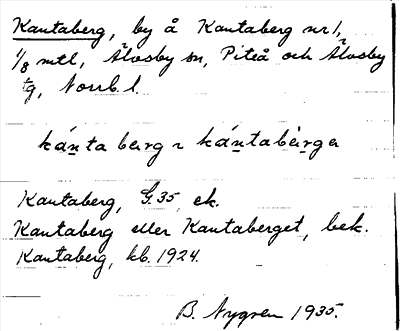 Kantaberg, by å Kantaberg nr 1,
1/8 mtl, Älvsby sn, Piteå och Älvsby
tg, Norrb. l.
kánta bærg ~ kántabèrgə
Kantaberg, G.35, ek.
Kantaberg eller Kantaberget, bek.
Kantaberg, kb. 1924.
B. Nygren 1935.